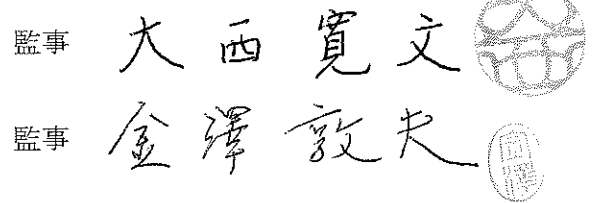 監事 大西寛文
監事 金澤敦夫